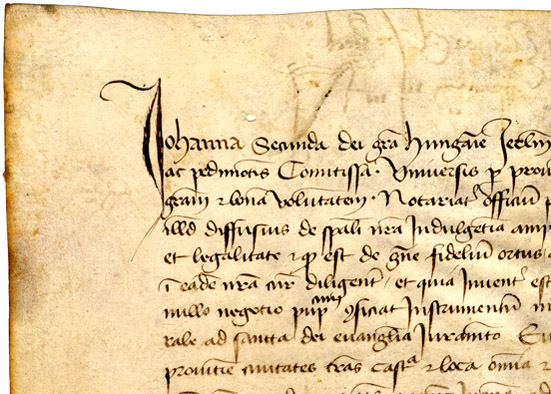 Johanna Secunda dei gra hungarie Jerlm
ac pedimotis Comitissa. Universis p
gram & bona voluntatem. Notariat officiu
illd diffusius de spali nra Indulgetia amp
et legalitate & q est de gne fidelium ortus
i eade nra cur diligent et quia Invent est
nullo negotio cuiq 9ficiat Instrumentu
rale ad sancta dei evanglia Juramto
provintie civitates tras Castra & loca omia &